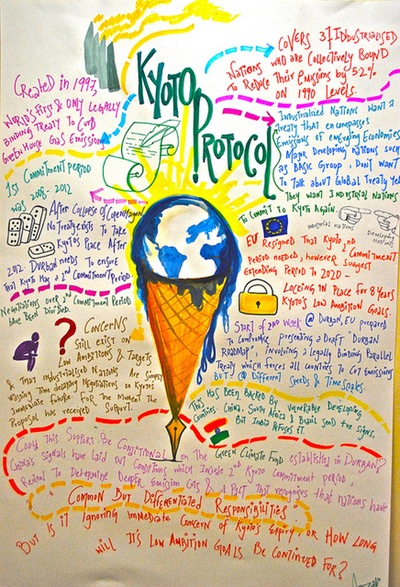 KYOTO
PROTOCOL
CREATED in 1997,
WORLD'S FIRST & ONLY LEGALLY
BINDING TREATY TO CURB
GREENHOUSE GAS EMISSION
1ST COMMITMENT PERIOD
was 2008 - 2012
AFTER COLLAPSE OF COPENHAGEN
NO TREATY EXISTS TO TAKE
KYOTO'S PLACE AFTER
2012. DURBAN NEEDS TO ENSURE
THAT KYOTO HAS A 2nd COMMITMENT PERIOD.
NEGOTIATIONS OVER 2nd COMMITMENT PERIOD
HAVE BEEN DIVIDED.
? CONCERNS
STILL EXIST ON
LOW AMBITIONS & TARGETS
& THAT INDUSTRIALISED NATIONS ARE SIMPLY
TIME DELAYING NEGOTIATIONS ON KYOTO'S
IMMEDIATE FUTURE. FOR THE MOMENT THE
PROPOSAL HAS RECEIVED SUPPORT.
COVERS 37 INDUSTRIALISED
NATIONS
WHO ARE COLLECTIVELY BOUND
TO REDUCE THEIR EMISSIONS BY 5.2%
ON 1990 LEVELS.
INDUSTRIALISED NATIONS WANT A
TREATY THAT ENCOMPASSES
EMISSIONS OF EMERGING ECONOMIES
MAJOR DEVELOPING NATIONS SUCH
AS BASIC GROUP, DON'T WANT
TO TALK ABOUT GLOBAL TREATY YET
THEY WANT INDUSTRIAL NATIONS
TO COMMIT TO KYOTO AGAIN.
INDUSTRIAL NATIONS
DEVELOPING NATIONS
EU RESIGNED THAT KYOTO 2nd
COMMITMENT
PERIOD NEEDED, HOWEVER SUGGEST
EXTENDING PERIOD TO 2020 -
LOCKING IN PLACE FOR 8 YEARS
KYOTO'S LOW AMBITION GOALS.
START OF 2nd WEEK @ DURBAN, EU PREPARED
TO COMPROMISE, PRESENTING A DRAFT 'DURBAN
ROADMAP', INVOLVING A LEGALLY BINDING PARALLEL
TREATY WHICH FORCES ALL COUNTRIES TO CUT EMISSIONS
BUT @ DIFFERENT SPEEDS & TIMESCALES
THIS HAS BEEN BACKED BY VULNERABLE DEVELOPING
COUNTRIES. CHINA, SOUTH AFRICA & BRAZIL SEND THE SIGNS,
BUT INDIA REFUSES IT.
COULD THIS SUPPORT BE CONDITIONAL ON THE GREEN CLIMATE FUND ESTABLISHED IN DURBAN?
CHINA'S SIGNALS HAVE LAID OUT CONDITIONS WHICH INCLUDE 2nd KYOTO COMMITMENT PERIOD,
REVIEW TO DETERMINE DEEPER EMISSION CUTS & A PACT THAT RECOGNISES THAT NATIONS HAVE
'COMMON BUT DIFFERENTIATED RESPONSIBILITIES'
BUT IS IT IGNORING IMMEDIATE CONCERN OF KYOTO'S EXPIRY, OR HOW LONG
WILL IT'S LOW AMBITION GOALS BE CONTINUED FOR?